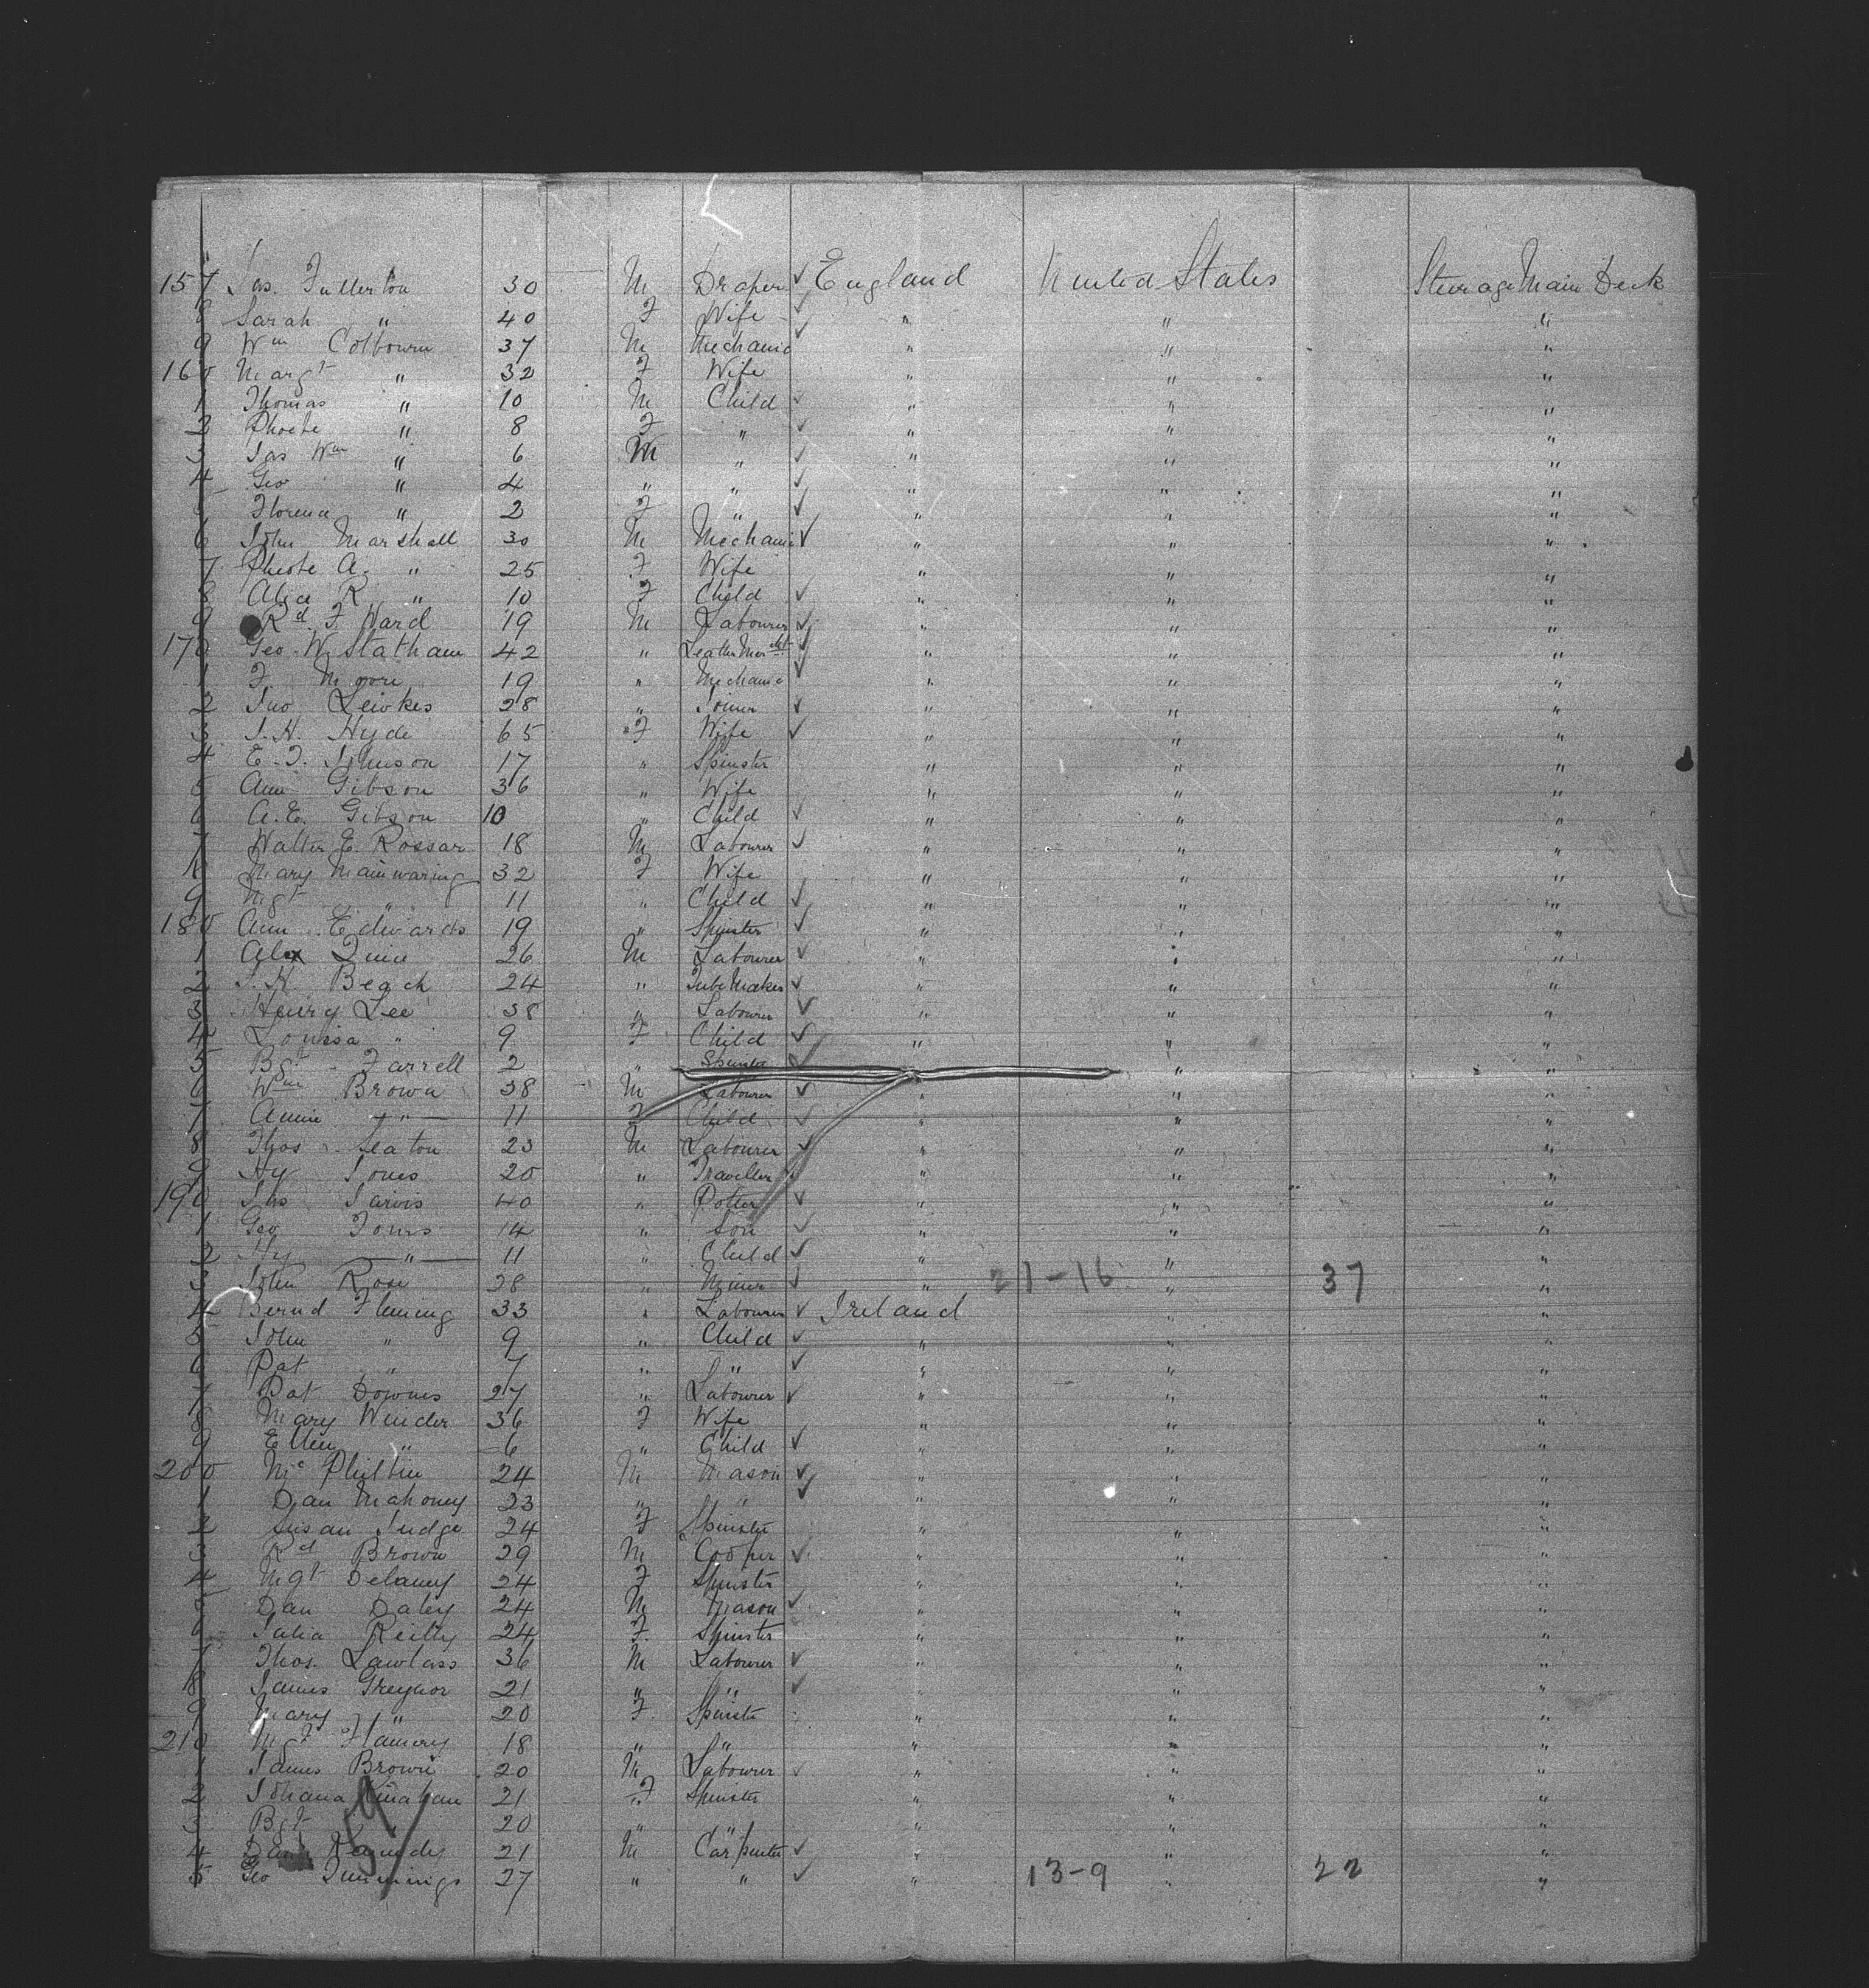 157 Jas. Fullerton 30 M Draper ✓ England United States Steerage Main Deck
8 Sarah " 40 F Wife " " "
9 Wm Colbourn 37 M Mechanic ✓ " " "
160 Margt " 32 F Wife " " "
1 Thomas " 10 M Child ✓ " " "
2 Phoebe " 8 F " ✓ " " "
3 Jas Wm " 6 M " ✓ " " "
4 Geo " 4 " " ✓ " " "
5 " 2 F " ✓ " " "
6 John Marshall 30 M Mechanic ✓ " " "
7 Phoebe A. " 25 F Wife " " "
8 Alice R " 10 F Child ✓ " " "
9 Rd. F Ward 19 M Labourer ✓ " " "
170 Geo. W. Statham 42 " Leather Mercht ✓ " " "
1 F Moore 19 " Mechanic ✓ " " "
2 Jno 28 " Joiner ✓ " " "
3 S. H. Hyde 65 " F Wife ✓ " " "
4 E. J. Johnson 17 " Spinster " " "
5 Ann Gibson 36 " Wife " " "
6 A. E. Gibson 10 " Child ✓ " " "
7 Walter E. Rossar 18 M Labourer ✓ " " "
8 Mary Mainwaring 32 F Wife " " "
9 Mgt " 11 " Child ✓ " " "
180 Ann Edwards 19 " Spinster ✓ " " "
1 Alex Quinn 26 M Labourer ✓ " " "
2 Beach 24 " Tube Maker ✓ " " "
3 Henry Lee 38 " Labourer ✓ " " "
4 Louisa " 9 F Child ✓ " " "
5 Bgt Farrell 2 " Spinster ✓ " " "
6 Wm Brown 38 M Labourer ✓ " " "
7 Annie " 11 F Child ✓ " " "
8 Thos Seaton 23 M Labourer ✓ " " "
9 Hy Jones 20 " Traveller " " "
190 Jas Jarvis 40 " Potter ✓ " " "
1 Geo Jones 14 " Son ✓ " " "
2 Hy " 11 " Child ✓ " " "
3 John Rose 28 " Miner ✓ " 21-16 " 37 "
4 Bernd Fleming 33 " Labourer ✓ Ireland " "
5 John " 9 " Child ✓ " " "
6 Pat " 7 " " ✓ " " "
7 Pat Downes 27 " Labourer ✓ " " "
8 Mary Winder 36 F Wife " " "
9 Ellen " 6 " Child ✓ " " "
200 Mc Philbin 24 M Mason ✓ " " "
1 Dan Mahoney 23 " " ✓ " " "
2 Susan Judge 24 F Spinster " " "
3 Rd Brown 29 M Cooper ✓ " " "
4 Mgt Delaney 24 F Spinster " " "
5 Dan Daley 24 M Mason ✓ " " "
6 Julia Reilly 24 F. Spinster " " "
7 Thos. Lawlass 36 M Labourer ✓ " " "
8 James Greynor 21 " " ✓ " " "
9 Mary " 20 F Spinster " " "
210 Mgt Flannery 18 " " " " "
1 James Brown 20 M Labourer ✓ " " "
2 Johana Kinahan 21 " F Spinster " " "
3 Bgt " 20 " " " " "
4 Kennedy 21 M Carpenter ✓ " " "
5 Geo Jennings 27 " " ✓ " 13-9 " 22 "
59